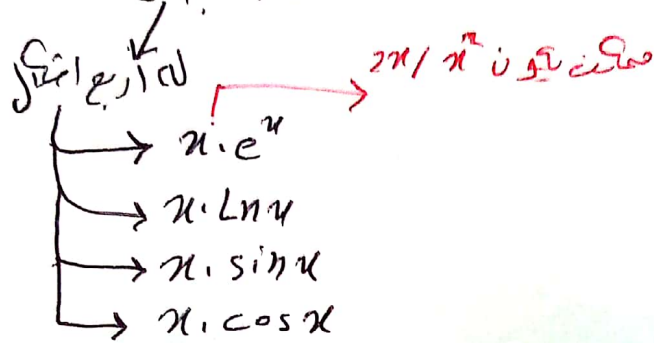 له اربع اشكال
ممكن يكون 2x / xⁿ
x . e^x
x . Ln x
x . sin x
x . cos x